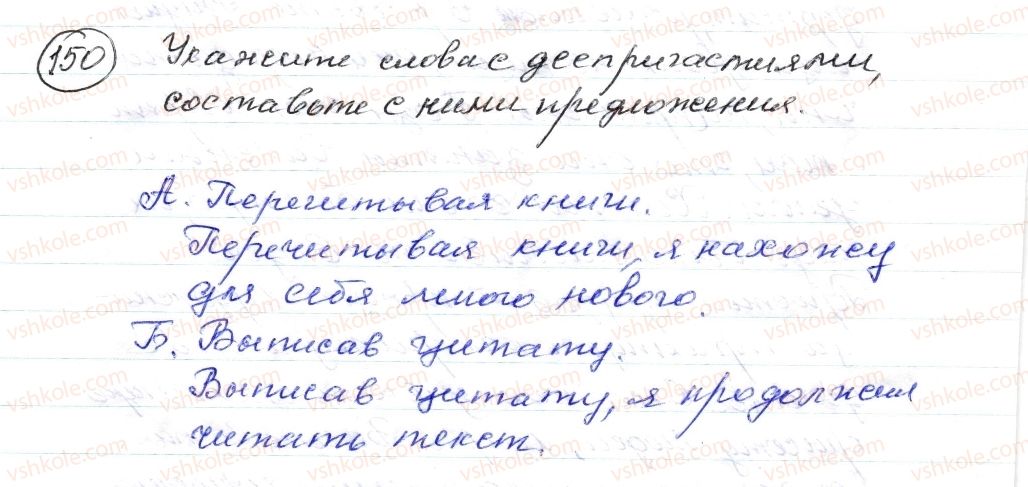 150 Укажите слова с деепричастиями,
составьте с ними предложения.
А. Перечитывая книги.
Перечитывая книги, я нахожу
для себя много нового.
Б. Выписав цитату.
Выписав цитату, я продолжил
читать текст.